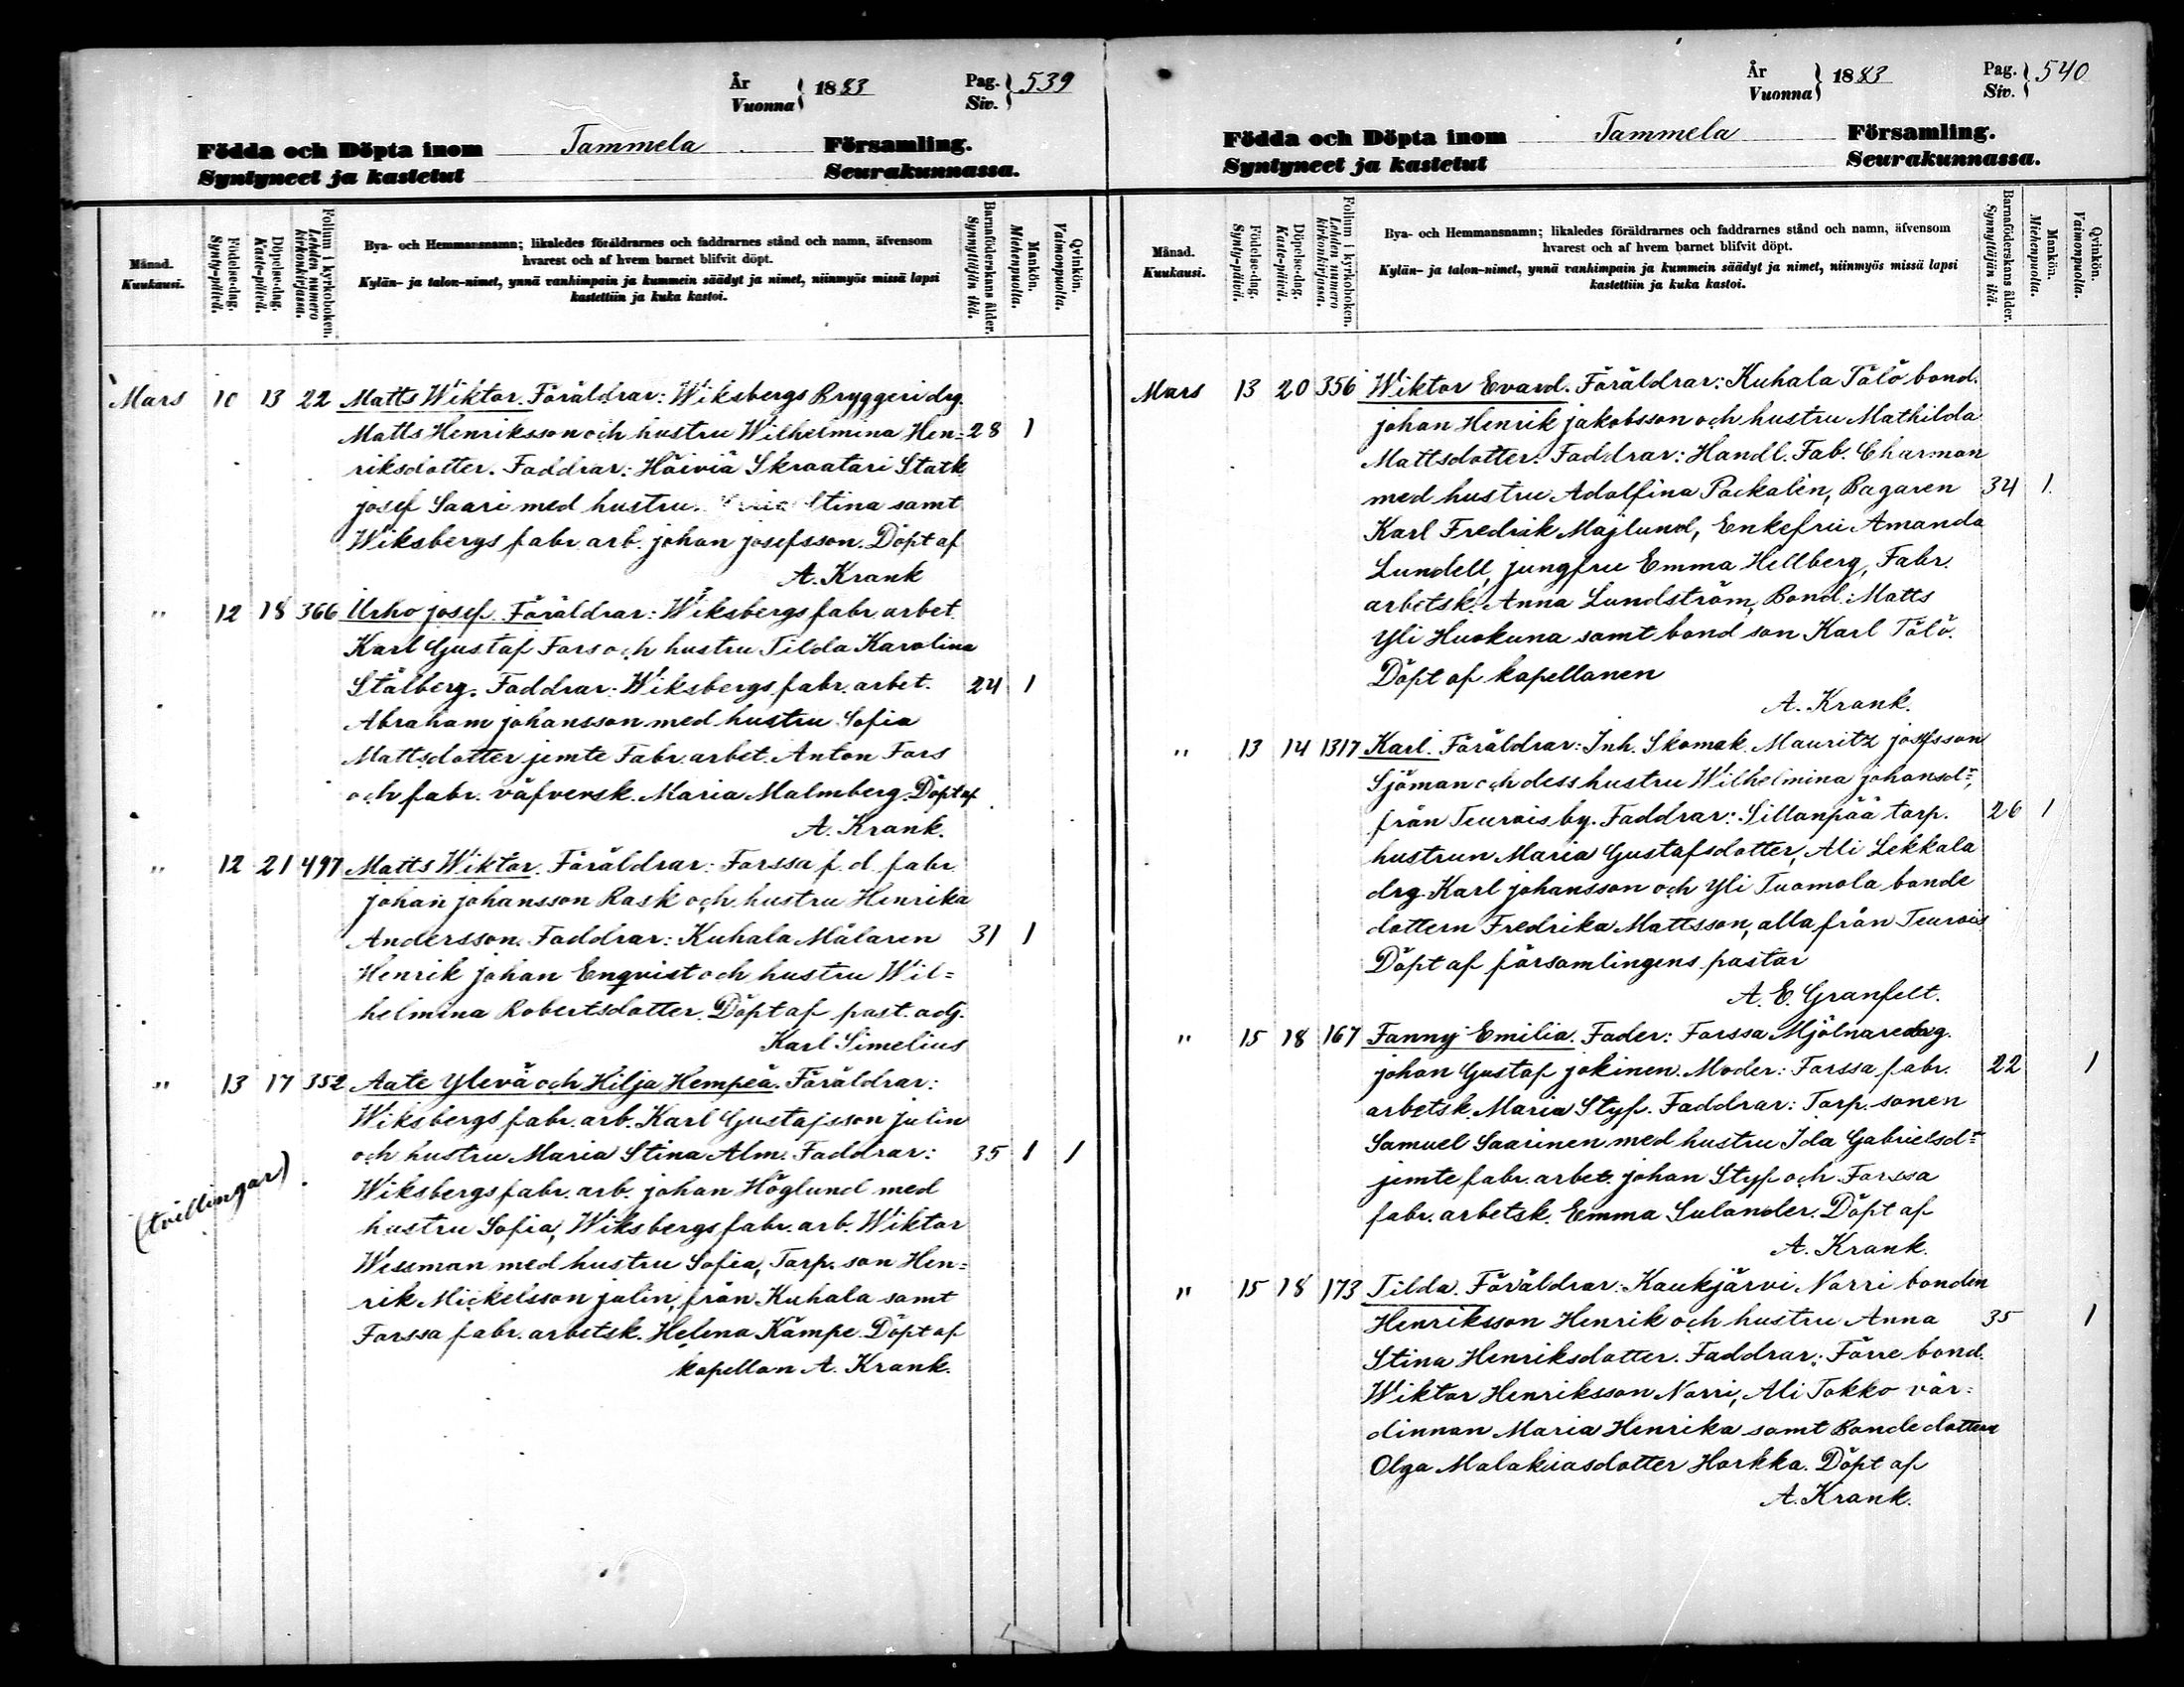 År
Vuonna
1883
Pag.
Siv.
539
Födda och Döpta inom Tammela Församling.
Syntyneet ja kastetut Seurakunnassa.
Månad.
Kuukausi.
Födelse-dag.
Synty-päivä.
Döpelse-dag.
Kaste-päivä.
Folium i kyrkoboken.
Lehden numero kirkonkirjassa.
Bya- och Hemmansnamn; likaledes föräldrarnes och faddrarnes stånd och namn, äfvensom
hvarest och af hvem barnet blifvit döpt.
Kylän- ja talon-nimet, ynnä vanhimpain ja kummein säädyt ja nimet, niinmyös missä lapsi
kastettiin ja kuka kastoi.
Barnaföderskans ålder.
Synnyttäjän ikä.
Mankön.
Miehenpuolta.
Qvinkön.
Vaimonpuolta.
Mars 10 13 22 Matts Wiktor. Föräldrar: Wiksbergs Bryggeri drg.
Matts Henriksson och hustru Wilhelmina Hen= 28 1
riksdotter. Faddrar: Häiviä Skraatari Statk
josef Saari med hustru Stina samt
Wiksbergs fabr. arb. johan josefsson. Döpt af
A. Krank
" 12 18 366 Urho josef. Föräldrar: Wiksbergs fabr. arbet.
Karl Gustaf Fors och hustru Tilda Karolina
Stålberg. Faddrar: Wiksbergs fabr. arbet. 24 1
Abraham johansson med hustru Sofia
Mattsdotter jemte Fabr. arbet. Anton Fors
och fabr. väfversk. Maria Malmberg. Döpt af
A. Krank.
" 12 21 497 Matts Wiktor. Föräldrar: Forssa f. d. fabr.
johan johansson Rask och hustru Henrika
Andersson. Faddrar: Kuhala Målaren 31 1
Henrik johan Enqvist och hustru Wil=
helmina Robertsdotter. Döpt af past. adj.
Karl Simelius
" 13 17 352 Aate Ylevä och Hilja Hempeä. Föräldrar:
Wiksbergs fabr. arb. Karl Gustafsson julin
och hustru Maria Stina Alm. Faddrar: 35 1 1
(tvillingar) Wiksbergs fabr. arb. johan Höglund med
hustru Sofia, Wiksbergs fabr. arb. Wiktor
Wessman med hustru Sofia, Torp. son Hen=
rik Mickelsson julin, från Kuhala samt
Forssa fabr. arbetsk. Helena Kämpe. Döpt af
kapellan A. Krank.
År
Vuonna
1883
Pag.
Siv.
540
Födda och Döpta inom Tammela Församling.
Syntyneet ja kastetut Seurakunnassa.
Månad.
Kuukausi.
Födelse-dag.
Synty-päivä.
Döpelse-dag.
Kaste-päivä.
Folium i kyrkoboken.
Lehden numero kirkonkirjassa.
Bya- och Hemmansnamn; likaledes föräldrarnes och faddrarnes stånd och namn, äfvensom
hvarest och af hvem barnet blifvit döpt.
Kylän- ja talon-nimet, ynnä vanhimpain ja kummein säädyt ja nimet, niinmyös missä lapsi
kastettiin ja kuka kastoi.
Barnaföderskans ålder.
Synnyttäjän ikä.
Mankön.
Miehenpuolta.
Qvinkön.
Vaimonpuolta.
Mars 13 20 356 Wiktor Evard. Föräldrar: Kuhala Tölö bond.
johan Henrik jakobsson och hustru Mathilda
Mattsdotter. Faddrar: Handl. Fab. Charman
med hustru Adolfina Packalén, Bagaren 34 1
Karl Fredrik Majlund, Enkefru Amanda
Lundell, jungfru Emma Hellberg, Fabr.
arbetsk. Anna Lundström, Bond. Matts
Yli Huokuna samt bond son Karl Tölö.
Döpt af kapellanen
A. Krank.
" 13 14 1317 Karl. Föräldrar: Inh. Skomak. Mauritz josefsson
Sjöman och dess hustru Wilhelmina johansdr,
från Teurois by. Faddrar: Sillanpää torp. 26 1
hustrun Maria Gustafsdotter, Ali Lekkala
drg. Karl johansson och Yli Tuomola bonde
dottern Fredrika Mattsson, alla från Teurois
Döpt af församlingens pastor
A. E. Granfelt.
" 15 18 167 Fanny Emilia. Fader: Forssa Mjölnaredrg.
johan Gustaf jokinen. Moder: Forssa fabr. 22 1
arbetsk. Maria Styf. Faddrar: Torp. sonen
Samuel Saarinen med hustru Ida Gabrielsdr
jemte fabr. arbet. johan Styf och Forssa
fabr. arbetsk. Emma Sulander. Döpt af
A. Krank.
" 15 18 173 Tilda. Föräldrar: Kaukjärvi Norri bonden
Henriksson Henrik och hustru Anna 35 1
Stina Henriksdotter. Faddrar: Förre bond.
Wiktor Henriksson Norri, Ali Tokko vär=
dinnan Maria Henrika samt Bondedottern
Olga Malakiasdotter Horkka. Döpt af
A. Krank.